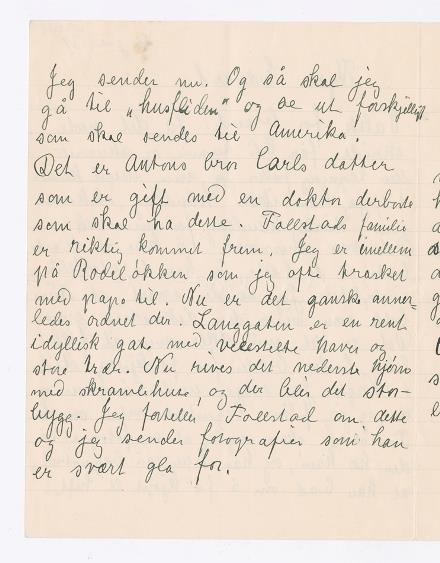 Jeg sender nu. Og så skal jeg
gå til „husfliden" og se ut forskjellig
som skal sendes til Amerika.
Det er Antons bror Carls datter
som er gift med en doktor derborte
som skal ha dette. Fallstads familie
er riktig kommet frem. Jeg er imellem
på Rodeløkken som jeg ofte trasket
med papa til. Nu er det ganske anner-
ledes ordnet der. Langgaten er en rent
idyllisk gate med velstelte haver og
store trær. Nu rives det nederste hjørne
med skramlehuse, og der blir det stor-
bygg. Jeg forteller Fallstad om dette
og jeg sender fotografier som han
er svært gla for.